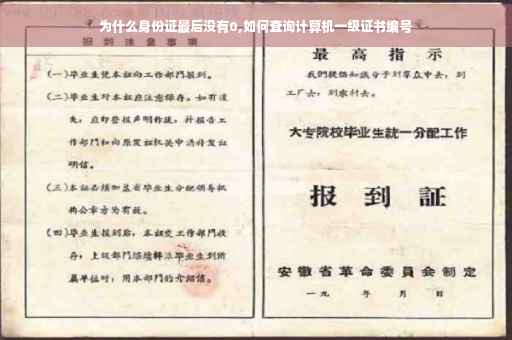 为什么身份证最后没有0,如何查询计算机一级证书编号
报到注意事项
(一)毕业生凭本证向工作部门报到。
(二)毕业生对本证应注意保存。如有遗
失，应即登报声明作废，并报告工
作部门和向原发证机关申请补发证
明信。
(三)本证必须加盖省毕业生分配领导机
构公章方为有效。
(四)毕业生报到后，本证交工作部门收
存；上级部门继续转派毕业生到所
属单位时，用本部门的介绍信。
最高指示
我们提倡知识分子到群众中去，到
工厂去，到农村去。
大专院校毕业生統一分配工作
报到証
安徽省革命委員会制定
一九 年 月 日